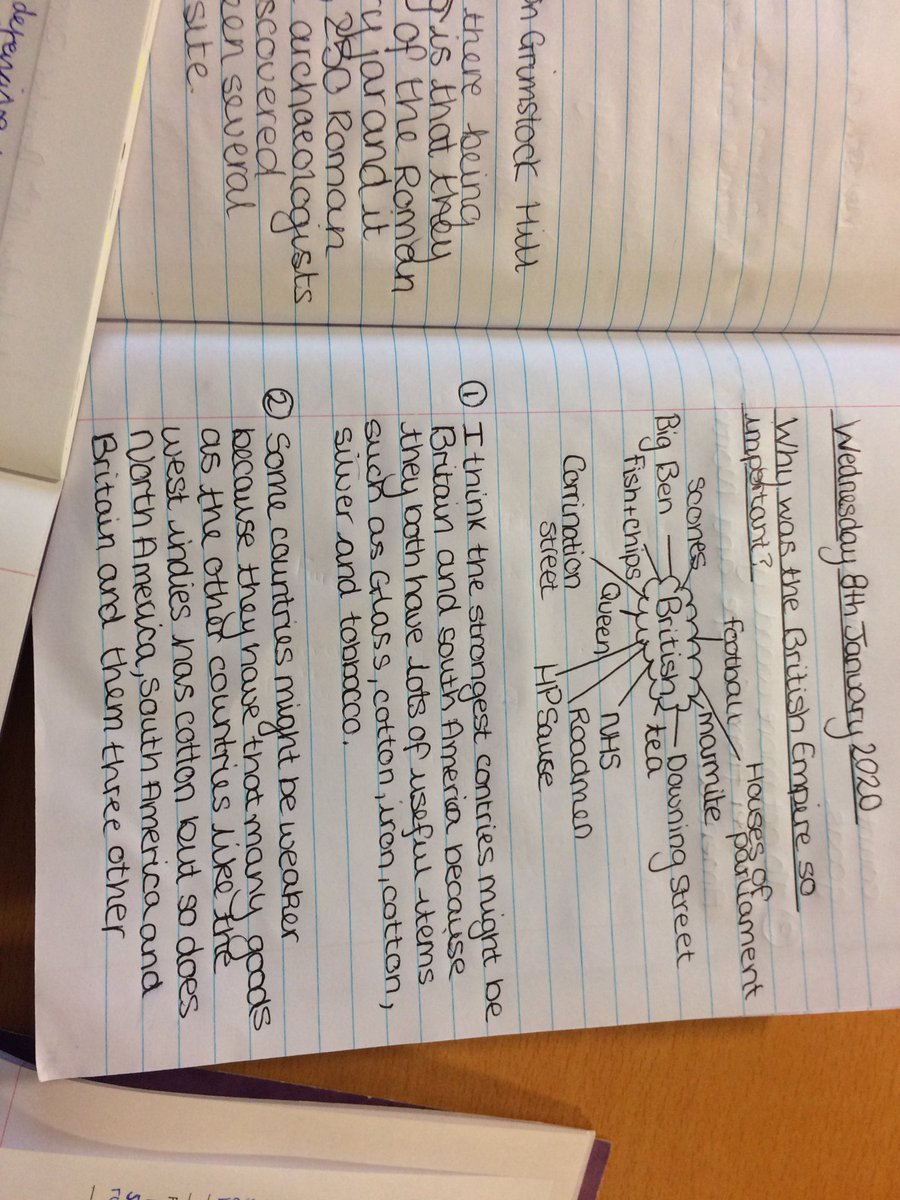 on Grimstock Hill
there being
is that they
of the Roman
ry jar and it
, 250 Roman
archaeologists
scovered
een several
site.
defensive
Wednesday 8th January 2020
Why was the British Empire so
important?
football
Houses of
parliament
scones
marmite
Big Ben
British
Downing Street
Fish+chips
tea
Queen
NHS
Corrination
street
Roadmen
HP Sause
① I think the strongest contries might be
Britain and south America because
they both have lots of useful items
such as Glass, cotton, iron, cotton,
silver and tobbacco.
② Some countries might be weaker
because they have that many goods
as the other countries like the
west indies has cotton but so does
North America, South America and
Britain and them three other